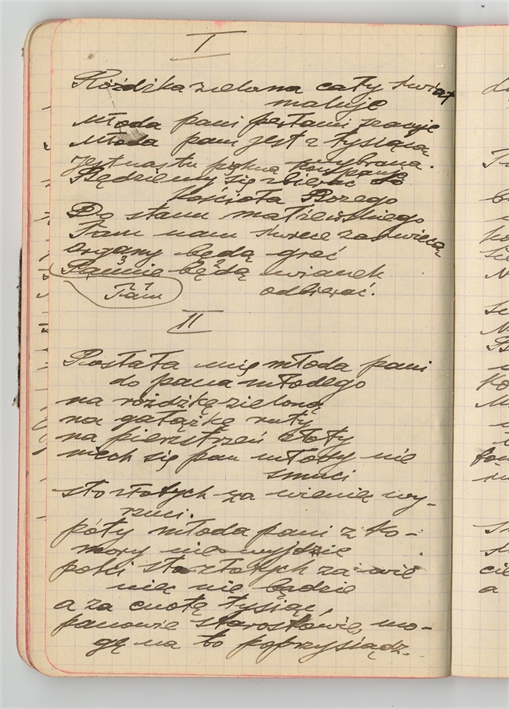 I
Różdżka zielona cały świat
maluje
Młoda pani perłami szanuje
Młoda pani jest z tysiąca
wybrana.
Jest nas tu piękna kompania
Będziemy się zbierać do
kościoła Bożego
Do stanu małżeńskiego
Tam nam świece zaświecą
organy będą grać
Pannie będą wianek
Tam odbierać.
II
Posłała mię młoda pani
do pana młodego
na różdżkę zieloną
na gałązkę ruty
na pierszcień złoty
niech się pan młody nie
smuci
sto złotych za wienie wy-
rzuci.
póty młoda pani z ko-
mory nie wyjdzie
póki sto złotych za wie
niek nie będzie
a za cnotę tysiąc,
panowie starostowie, mo-
gę na to poprzysiądz.